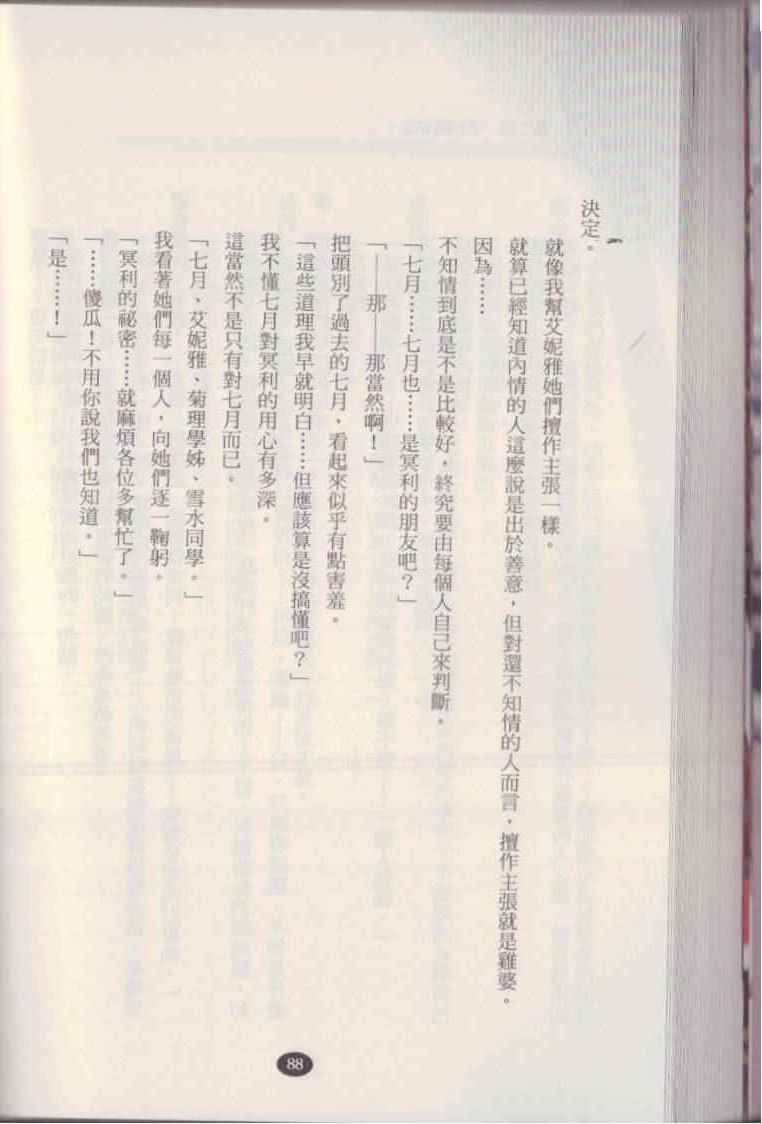 決定。
就像我幫艾妮雅她們擅作主張一樣。
就算已經知道內情的人這麼說是出於善意，但對還不知情的人而言，擅作主張就是雞婆。
因為……
不知情到底是不是比較好，終究要由每個人自己來判斷。
「七月……七月也……是冥利的朋友吧？」
「——那——那當然啊！」
把頭別了過去的七月，看起來似乎有點害羞。
「這些道理我早就明白……但應該算是沒搞懂吧？」
我不懂七月對冥利的用心有多深。
這當然不是只有對七月而已。
「七月、艾妮雅、菊理學姊、雪水同學。」
我看著她們每一個人，向她們逐一鞠躬。
「冥利的祕密……就麻煩各位多幫忙了。」
「……傻瓜！不用你說我們也知道。」
「是……！」
88